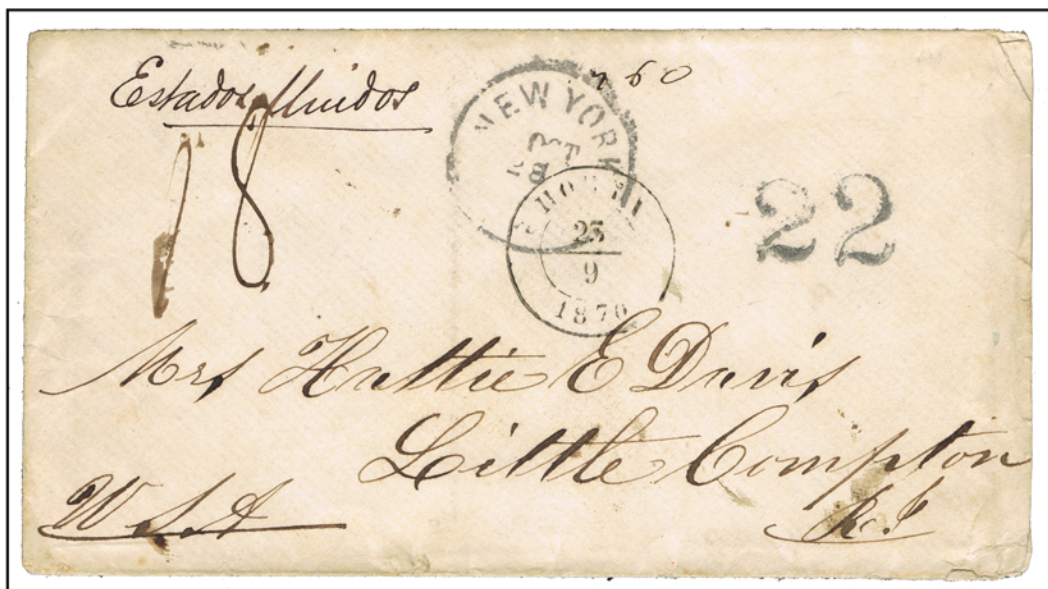 Estados Unidos
18
NEW YORK
OCT
28
HORTA
23
9
1870
22
Mrs Hattie E Davis
Little Compton
R.I
U S A